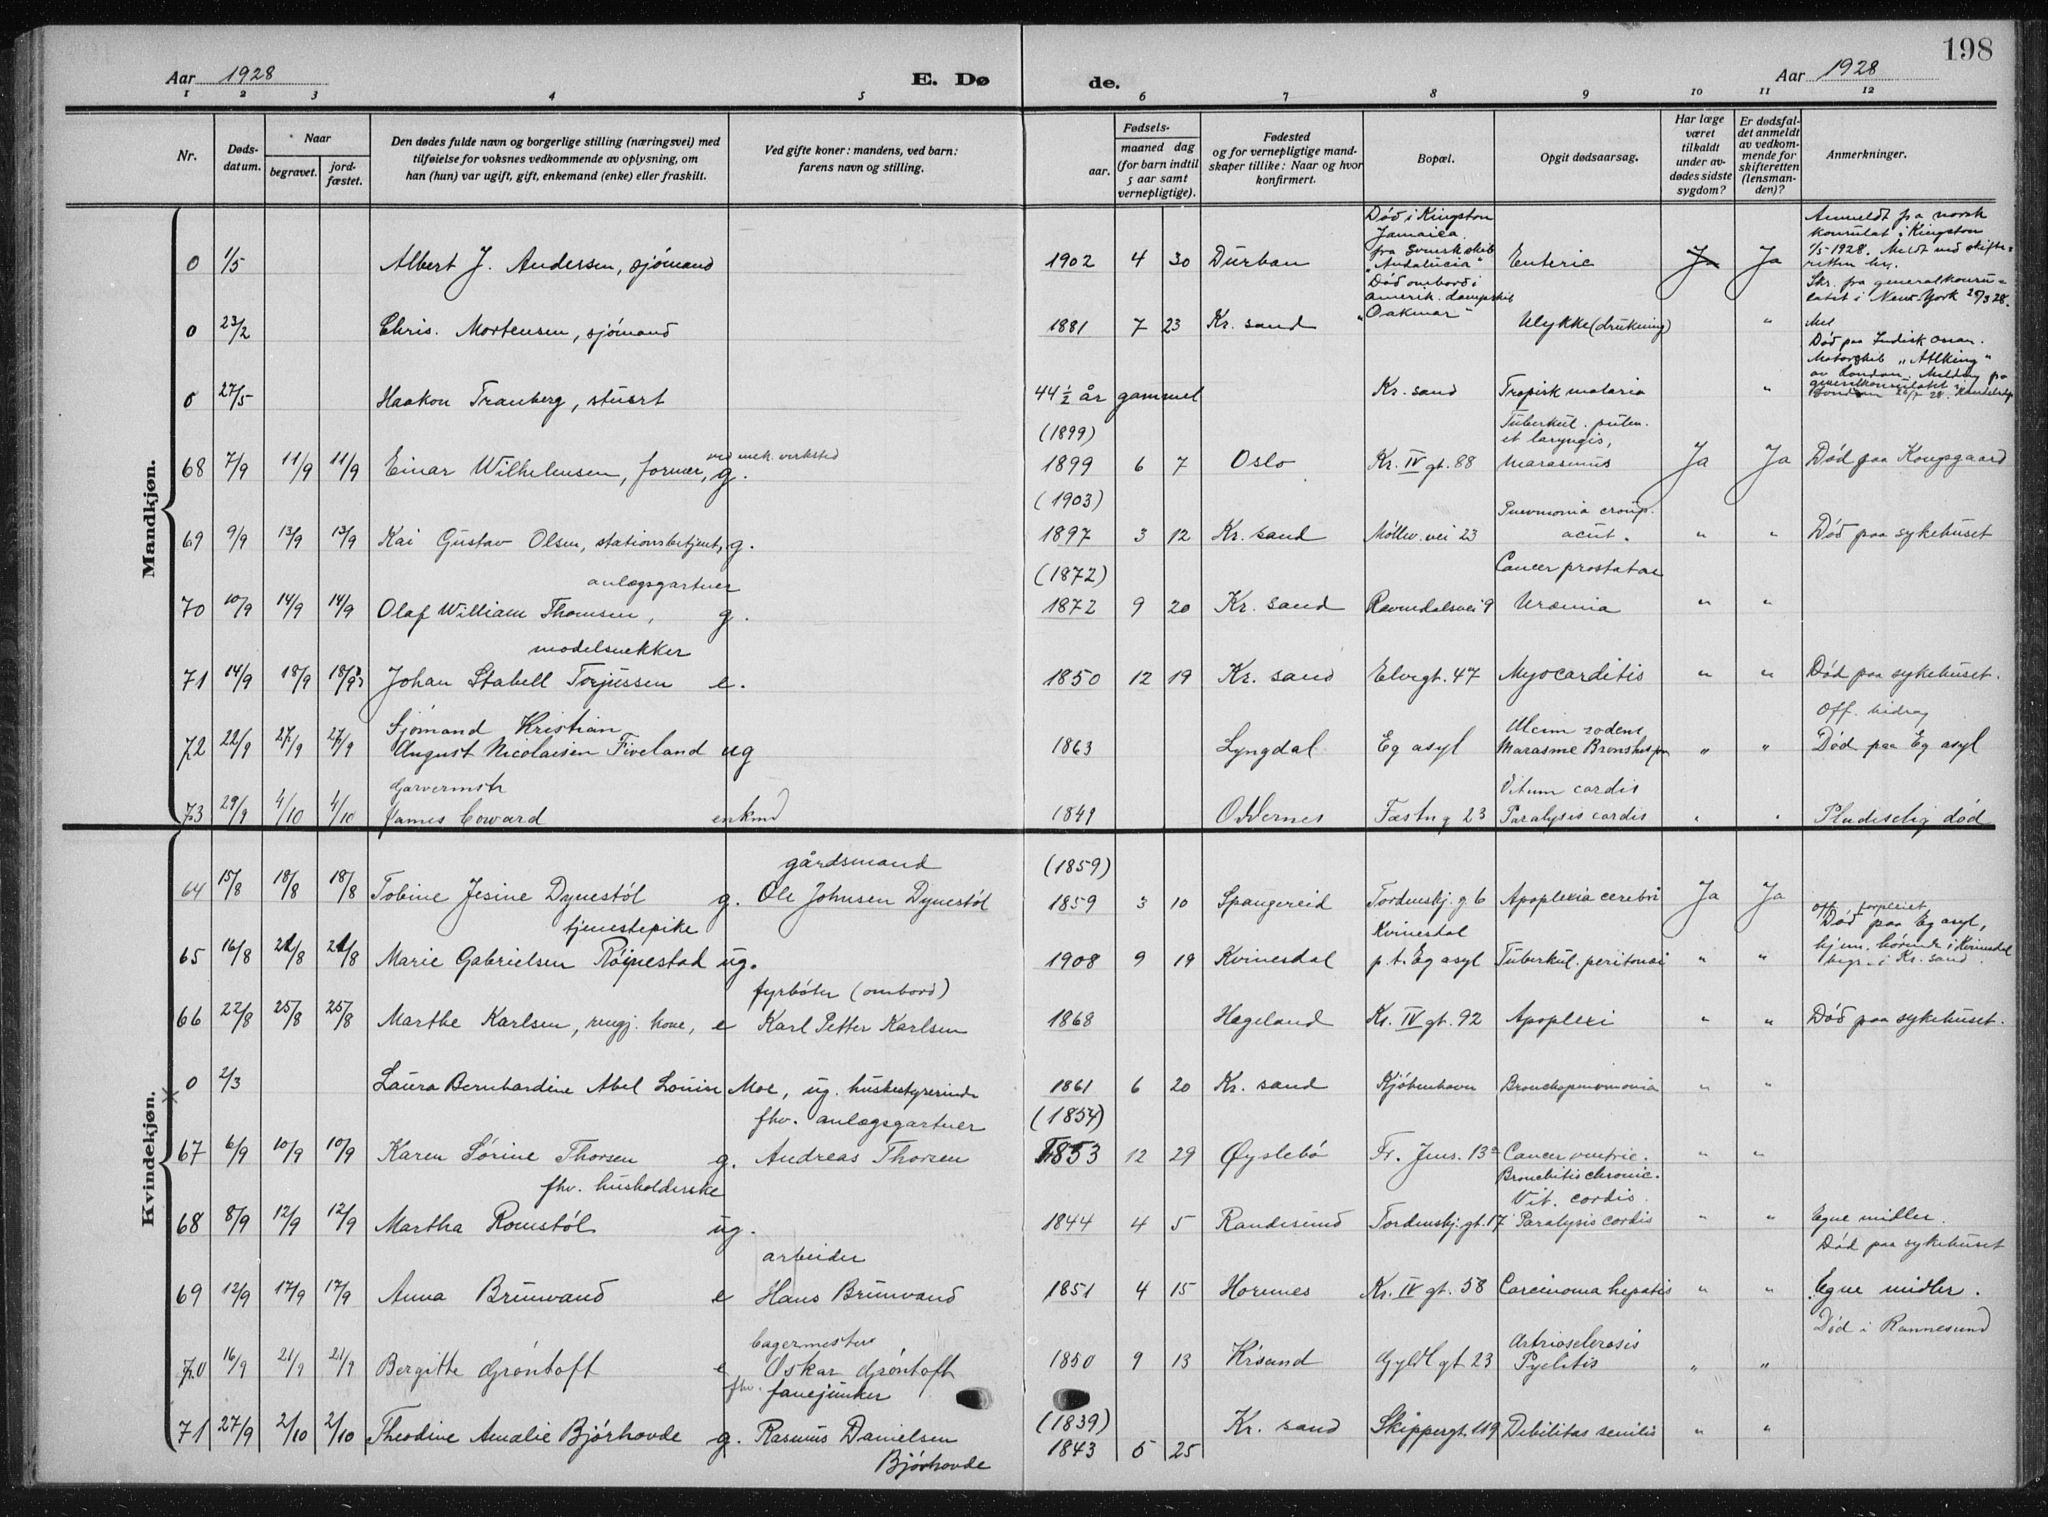 198
Aar 1928 E. Dø de. Aar 1928
1 2 3 4 5 6 7 8 9 10 11 12
Nr. Døds-datum. Naar begravet. jord-fæstet. Den dødes fulde navn og borgerlige stilling (næringsvei) med tilføielse for voksnes vedkommende av oplysning, om han (hun) var ugift, gift, enkemand (enke) eller fraskilt. Ved gifte koner: mandens, ved barn: farens navn og stilling. Fødsels- aar. maaned dag (for barn indtil 5 aar samt vernepligtige). Fødested og for vernepligtige mandskaper tillike: Naar og hvor konfirmert. Bopæl. Opgit dødsaarsag. Har læge været tilkaldt under avdødes sidste sygdom? Er dødsfaldet anmeldt av vedkommende for skifteretten (lensmanden)? Anmerkninger.
Mandkjøn.
0 1/5 Albert J. Andersen, sjømand 1902 4 30 Durban Død i Kingston Jamaica. fra Svensk skib "Andalucia" Enteric Ja Ja Anmeldt fra norsk konsulat i Kingston 1/5-1928. Meldt ved skifteretten her.
0 23/2 Chris. Mortensen, sjømand 1881 7 23 Kr. sand Død ombord i amerik. dampskib "Oakmar" Ulykke (drukning) " Skr. fra generalkonsulatet i New-York 28/3 28.
0 27/5 Haakon Tranberg, stuert 44 1/2 år gammel Kr. sand Tropisk malaria " Død paa Indisk Ocean. Motorskib "Athking" av London. Melding fra generalkonsulatet i London
68 7/9 11/9 11/9 Einar Wilhelmsen, former, ved mek. verksted g. (1899) 1899 6 7 Oslo Kr. IV gt. 88 Tuberkul. pulm. et laryngis, marasmus Ja Ja Død paa Kongsgaard
69 9/9 13/9 13/9 Kai Gustav Olsen, stationsbetjent, g. (1903) 1897 3 12 Kr. sand Møllev. vei 23 Pneumonia croup. acut. " " Død paa sykehuset
70 10/9 14/9 14/9 anlægsgartner Olaf William Thomsen, g. (1872) 1872 9 20 Kr. sand Ravndalsvei 9 Cancer prostatae Uræmia " "
71 14/9 18/9 18/9 modelsnekker Johan Stabell Torjussen e. 1850 12 19 Kr. sand Elvegt. 47 Myocarditis " " Død paa sykehuset.
72 22/9 27/9 27/9 Sjømand Kristian August Nicolaisen Fiveland ug 1863 Lyngdal Eg asyl Ulcim rodens Marasme " " Off. bidrag Død paa Eg asyl
73 29/9 4/10 4/10 Garvermstr James Coward enkmd 1849 Oddernes Fæstng 23 Vitum cordis Paralysis cordis " " Pludselig død
Kvindekjøn.
64 15/8 18/8 18/8 Tobine Jesine Dynestøl g. gårdsmand Ole Johnsen Dynestøl (1859) 1859 3 10 Spangereid Tordenskj. g 6 Apoplexia cerebri Ja Ja
65 16/8 21/8 21/8 tjenestepike Marie Gabrielsen Røynestad ug. 1908 9 19 Kvinesdal Kvinesdal p.t. Eg asyl Tuberkul. peritonei " " off. forpleiet Død paa Eg asyl, hjem. hørende i Kvinesdal begr. i Kr. sand.
66 22/8 25/8 25/8 Marthe Karlsen, rengj. kone, e fyrbøter (ombord) Karl Petter Karlsen 1868 Hægeland Kr. IV gt. 92 Apoplexi " " Død paa sykehuset.
0 2/3 Laura Bernhardine Abel Louise Moe, ug. husbestyrerinde 1861 6 20 Kr. sand Kjøbenhavn Bronchopneumonia " "
67 6/9 10/9 10/9 Karen Sørine Thorsen g. fhv. anlægsgartner Andreas Thorsen (1854) 1853 12 29 Øyslebø Fr. Jens. 13a Cancer ventric. " "
68 8/9 12/9 12/9 fhv. husholderske Martha Romstøl ug. 1844 4 5 Randesund Tordenskj. gt. 17 Bronchitis chronic. Vit. cordis. Paralysis cordis " " Egne midler.
69 12/9 17/9 17/9 Anna Brunvand e arbeider Hans Brunvand 1851 4 15 Hornnes Kr. IV gt. 58 Carcinoma hepatis " " Død paa sykehuset Egne midler.
70 16/9 21/9 21/9 Bergitte Grøntoft e bagermester Oskar Grøntoft 1850 9 13 Krsand Gyldl gt. 23 Artriosclerosis Pyelitis " " Død i Rannesund
71 27/9 2/10 2/10 Theodine Amalie Bjørhovde g. fhv. fanejunker Rasmus Danielsen Bjørhovde (1839) 1843 5 25 Kr. sand Skippergt. 119 Debilitas senilis " "